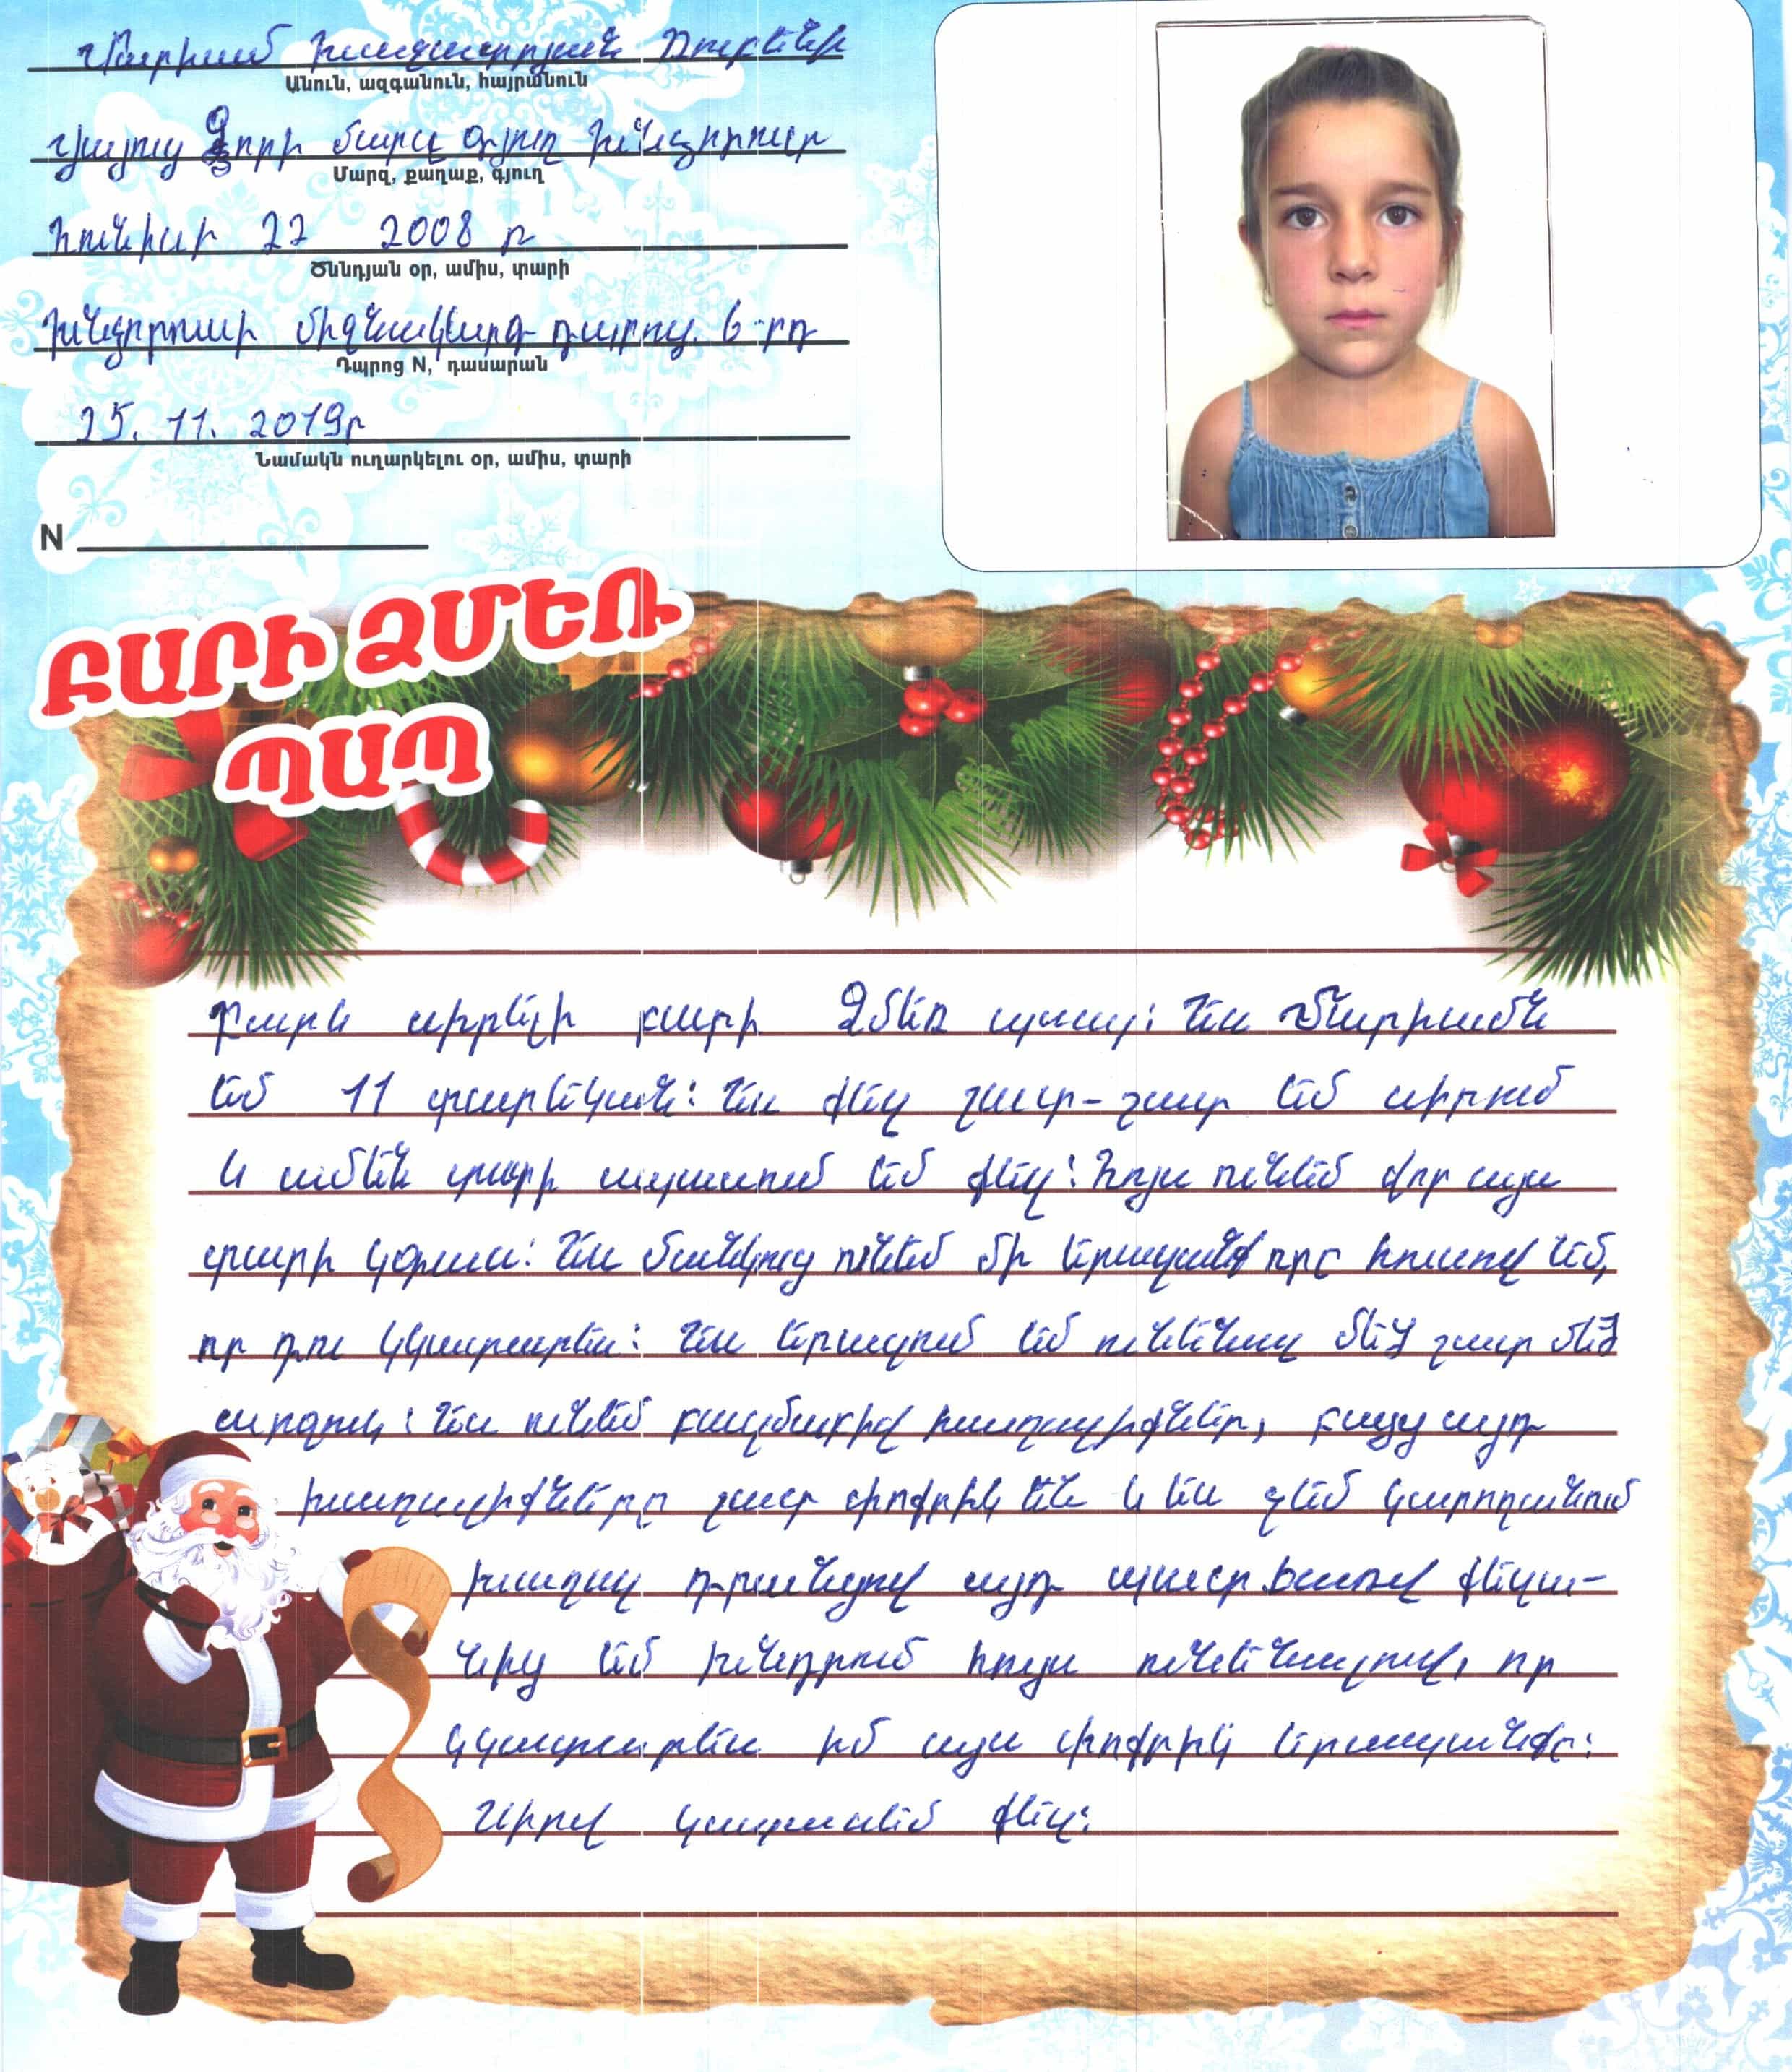 Մարիամ Խաչատրյան Ռուբենի
Անուն, ազգանուն, հայրանուն
Վայոց Ձորի մարզ գյուղ Խնձորուտ
Մարզ, քաղաք, գյուղ
Հունիսի 22 2008 թ
Ծննդյան օր, ամիս, տարի
Խնձորուտի միջնակարգ դպրոց. 6-րդ
Դպրոց N, դասարան
25. 11. 2019թ
Նամակն ուղարկելու օր, ամիս, տարի
N
ԲԱՐԻ ՁՄԵՌ
ՊԱՊ
Բարև սիրելի բարի Ձմեռ պապ: Ես Մարիամն
եմ 11 տարեկան: Ես քեզ շատ-շատ եմ սիրում
և ամեն տարի սպասում եմ քեզ: Հույս ունեմ վոր այս
տարի կգաս: Ես մանկուց ունեմ մի երազանք որը հուսով եմ,
որ դու կկատարես: Ես երազում եմ ունենալ մեծ շատ մեծ
արջուկ: Ես ունեմ բազմաթիվ խաղալիքներ, բայց այդ
խաղալիքները շատ փոքրիկ են և ես չեմ կարողանում
խաղալ դրանցով այդ պատճառով քեզա-
նից եմ խնդրում հույս ունենալով, որ
կկատարես իմ այս փոքրիկ երազանքը:
Սիրով կսպասեմ քեզ: